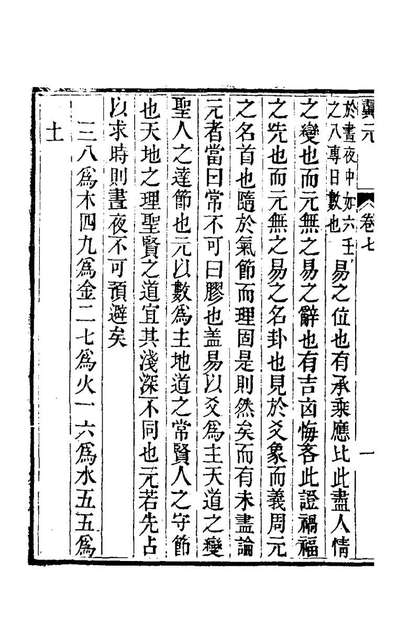 翼元 卷七 一
於晝夜中如六壬
之八專日數也
易之位也有承乘應比此盡人情
之變也而元無之易之辭也有吉凶悔吝此證禍福
之先也而元無之易之名卦也見於爻象而義周元
之名首也隨於氣節而理固是則然矣而有未盡論
元者當曰常不可曰膠也盖易以爻爲主天道之變
聖人之達節也元以數爲主地道之常賢人之守節
也天地之理聖賢之道宜其淺深不同也元若先占
以求時則晝夜不可預避矣
三八爲木四九爲金二七爲火一六爲水五五爲
土